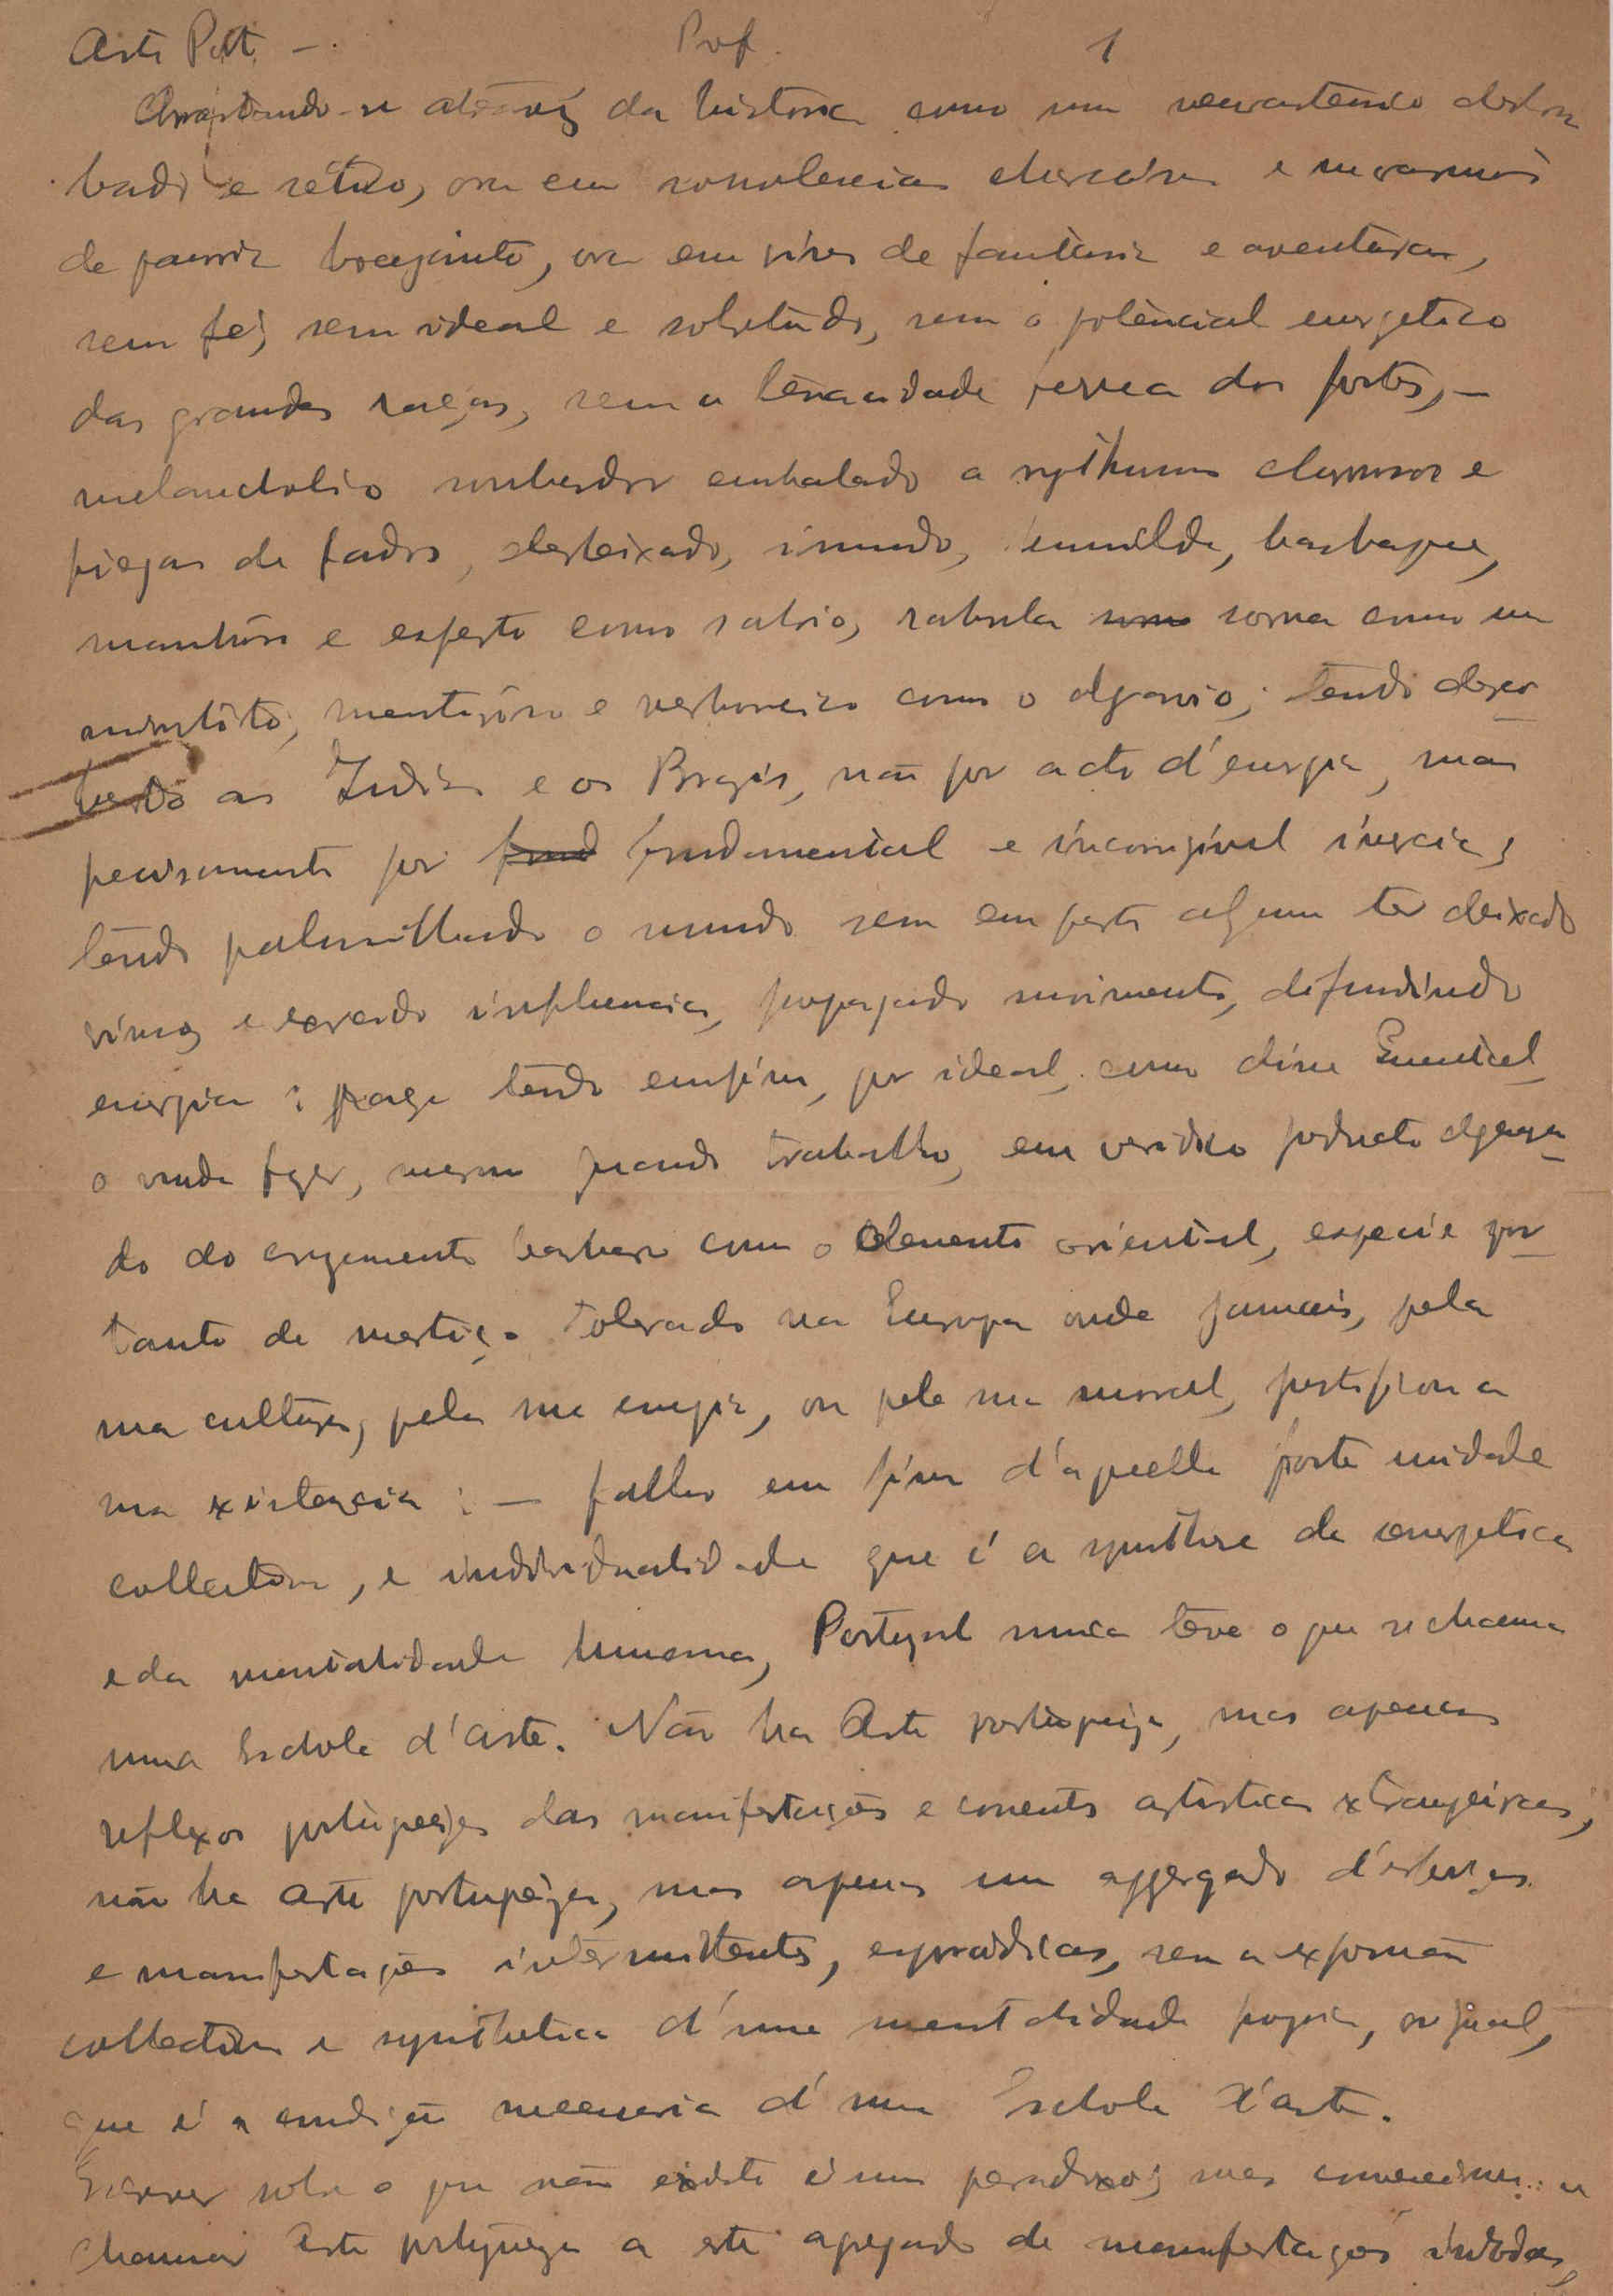 Arte Port. — Prof. 1
Arrastando-se através da historia como um neurastenico
e ora em somnolencias e marasmos
de bocejante, ora em de fantasia e aventuras,
sem fé, sem ideal e sobretudo, sem o potencial energetico
das grandes raças, sem a tenacidade ferrea dos fortes, —
melancholico sonhador embalado a rythmos chorosos e
piegas de fados, desleixado, immundo, humilde, basbaque,
manhoso e esperto como saloio, rabula sorna como um
mentiroso e como o algarvio; tendo desco-
berto as Indias e os Brazis, não por acto d'energia, mas
precisamente por fundamental e incorrigivel inercia;
tendo palmilhado o mundo sem em parte alguma ter deixado
e exercido influencia, propagado movimento, difundindo
energia; tendo emfim, por ideal, como disse
o nada fazer, mesmo quando trabalha, em producto
do do cruzamento barbaro com o elemento oriental, especie por-
tanto de mestiço tolerado na Europa onde jamais, pela
sua cultura, pela sua energia, ou pela sua moral, justificou a
sua existencia: — falho em fim d'aquella forte unidade
collectiva, e individualidade que é a synthese da energetica
e da mentalidade humana, Portugal nunca teve o que se chama
uma Eschola d'arte. Não ha Arte portugueza, mas apenas
reflexos portuguezes das manifestações e correntes artisticas extrangeiras;
não ha arte portugueza, mas apenas um aggregado d'esforços
e manifestações intermittentes, esporadicas, sem a expressão
collectiva e synthetica d'uma mentalidade propria, original,
que é a condição necessaria d'uma Eschola d'arte.
Escrever sobre o que não existe é um paradoxo; mas
chamar Arte portugueza a este agregado de manifestações